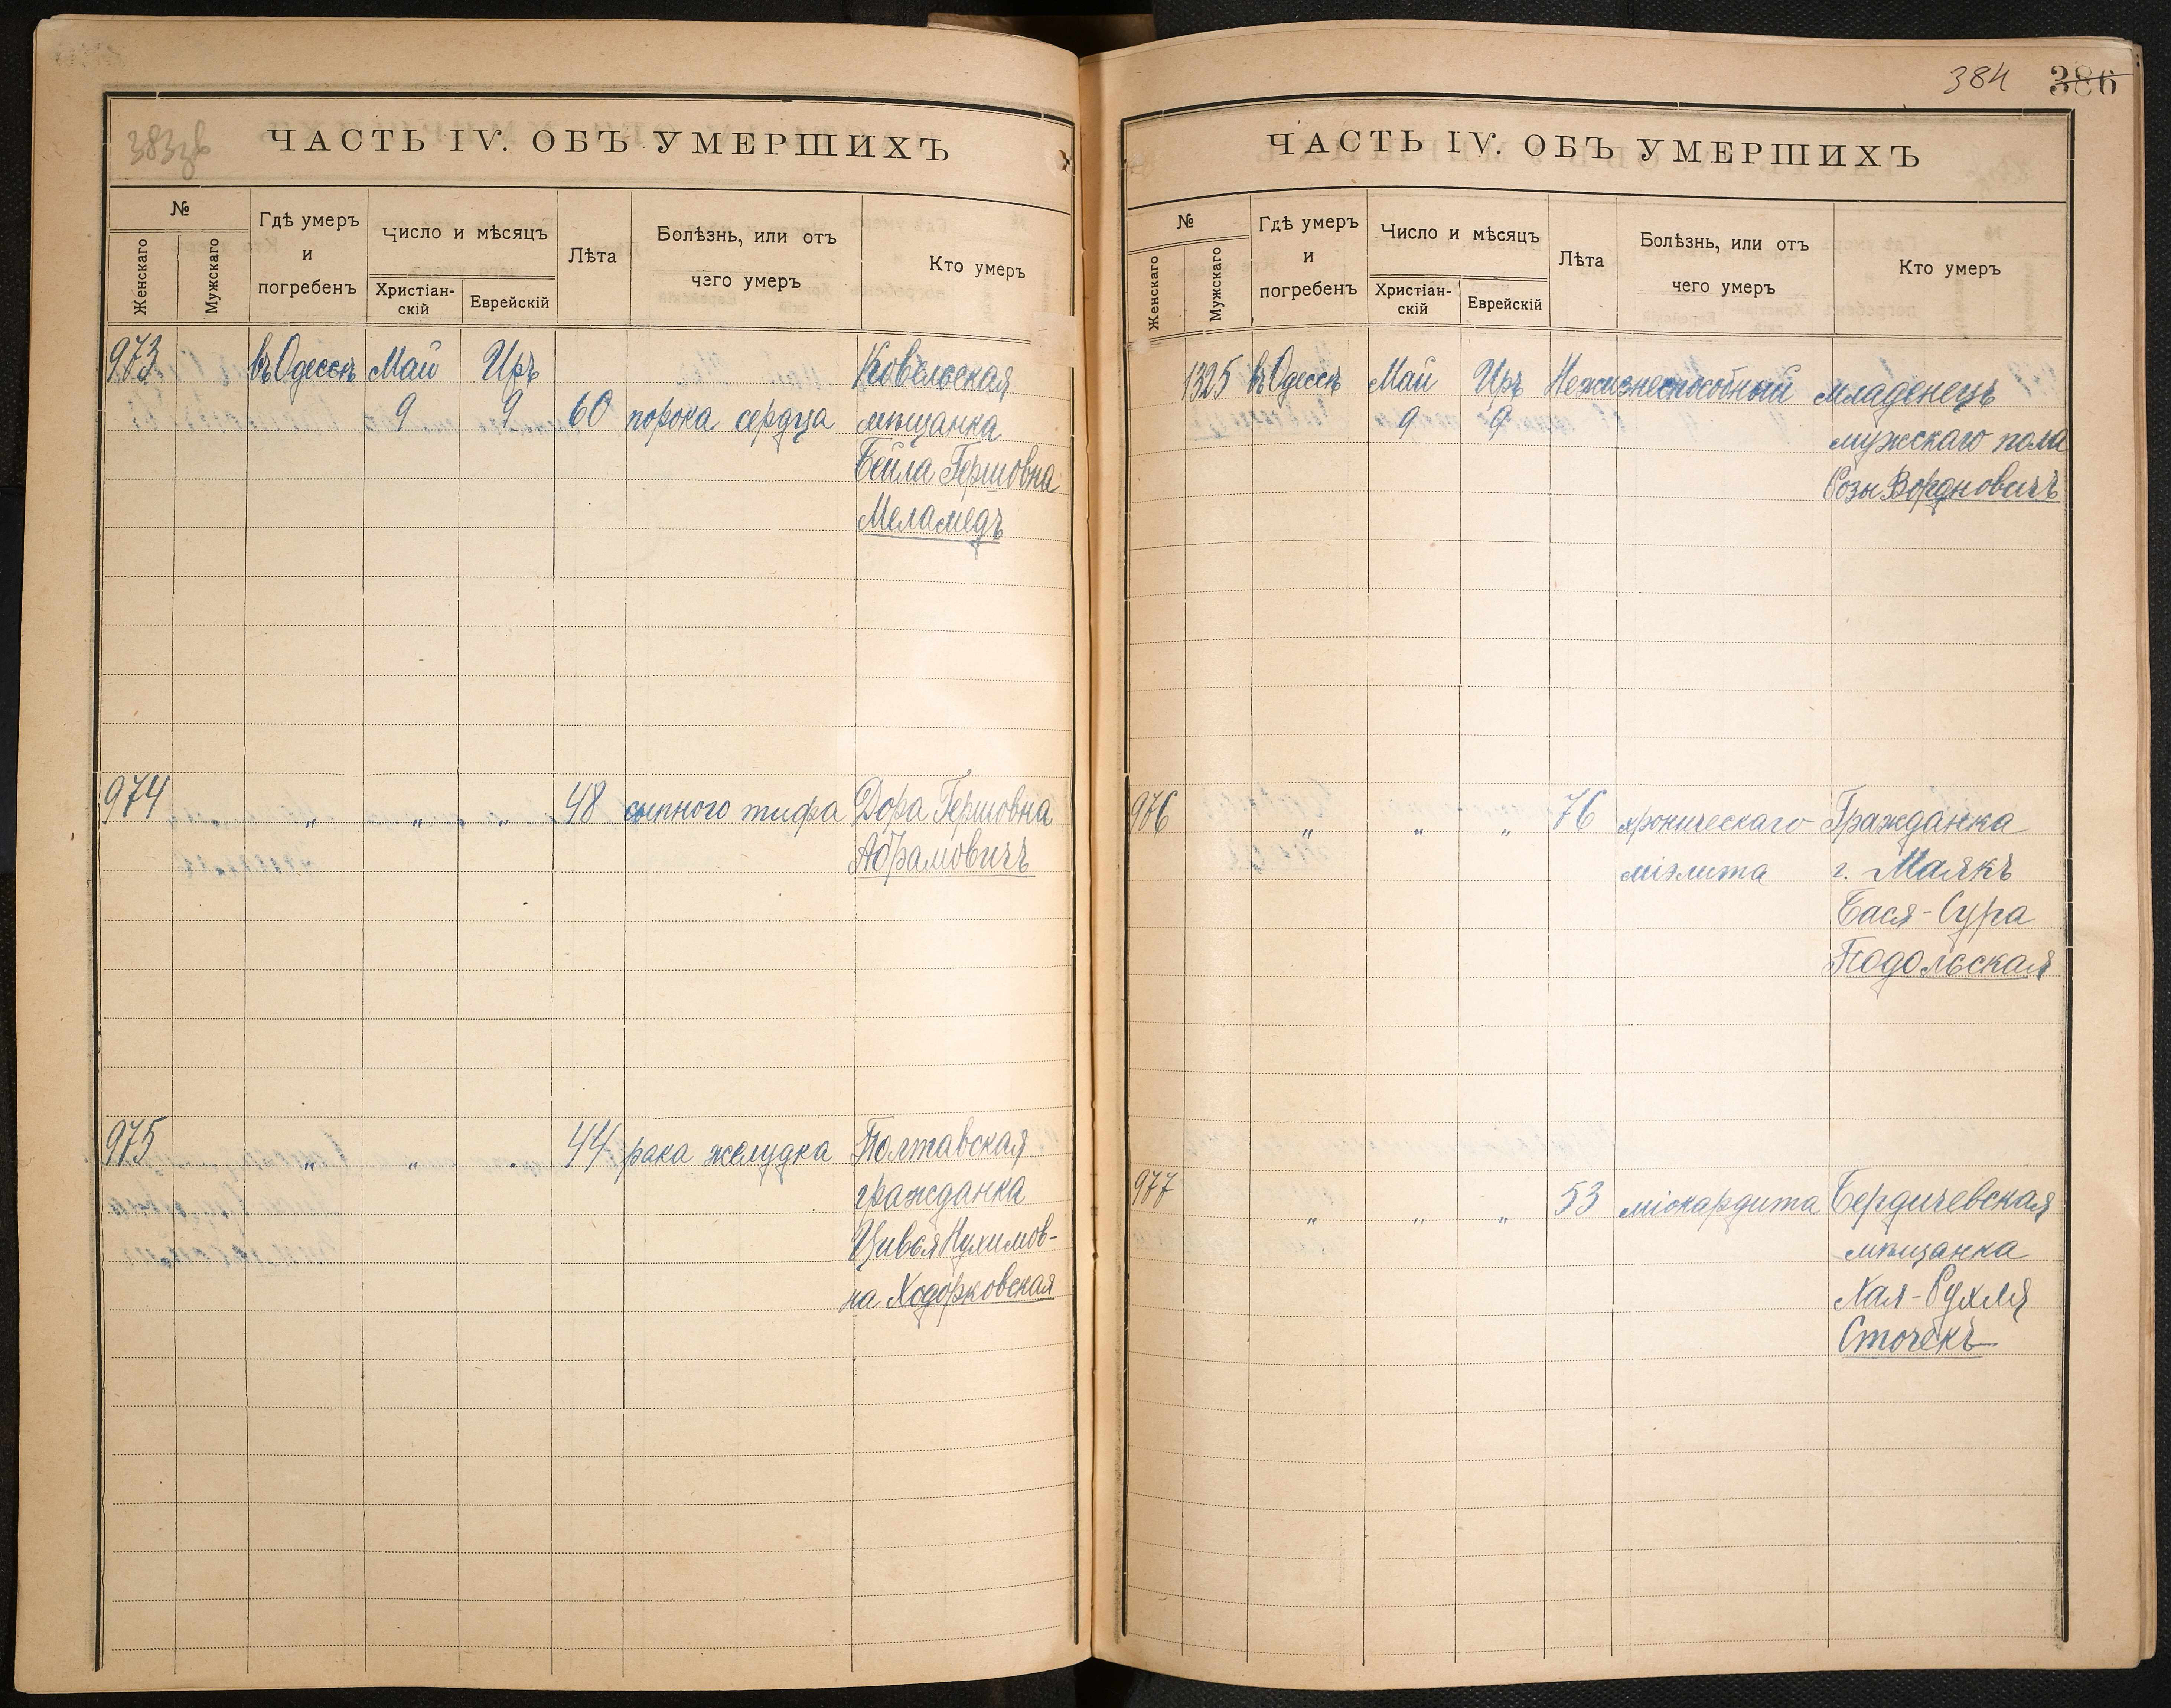 383зв
ЧАСТЬ IV. ОБЪ УМЕРШИХЪ
№
Женскаго
Мужскаго
Гдѣ умеръ
и
погребенъ
Число и мѣсяцъ
Христіан-
скій
Еврейскій
Лѣта
Болѣзнь, или отъ
чего умеръ
Кто умеръ
973 въ Одессѣ Май Иръ Ковельская
9 9 60 порока сердца мѣщанка
Бейла Гершовна
Меламедъ
974 „ „ „ 48 сыпного тифа Дора Гершовна
Абрамовичъ
975 „ „ „ 44 рака желудка Полтавская
гражданка
Цивья Нухимов-
на Ходорковская
384 386
ЧАСТЬ IV. ОБЪ УМЕРШИХЪ
№
Женскаго
Мужскаго
Гдѣ умеръ
и
погребенъ
Число и мѣсяцъ
Христіан-
скій
Еврейскій
Лѣта
Болѣзнь, или отъ
чего умеръ
Кто умеръ
1325 въ Одессѣ Май Иръ Нежизнеспособный младенецъ
9 9 мужскаго пола
Розы Вордновичъ
976 „ „ „ 76 хроническаго Гражданка
міэлита г. Маякъ
Бася-Сура
Подольская
977 „ „ „ 53 міокардита Бердичевская
мѣщанка
Хая-Рухля
Сточекъ